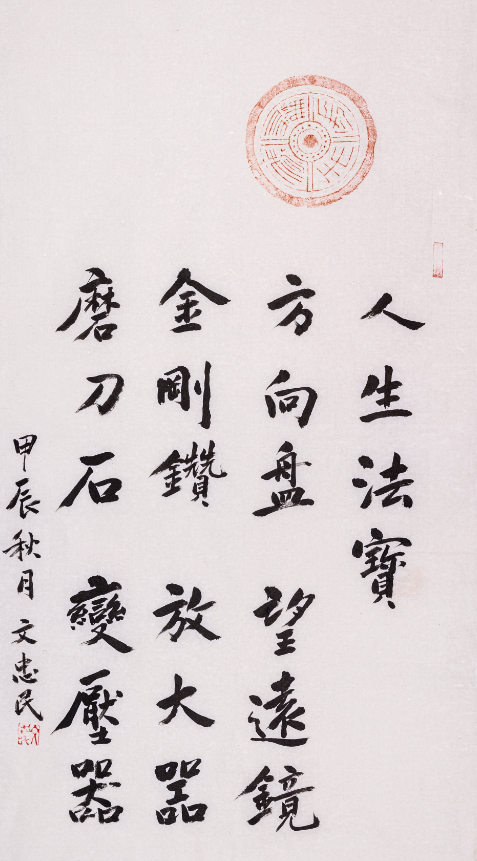 人生法寶
方向盤 望遠鏡
金剛鑽 放大器
磨刀石 變壓器
甲辰秋月 文忠民